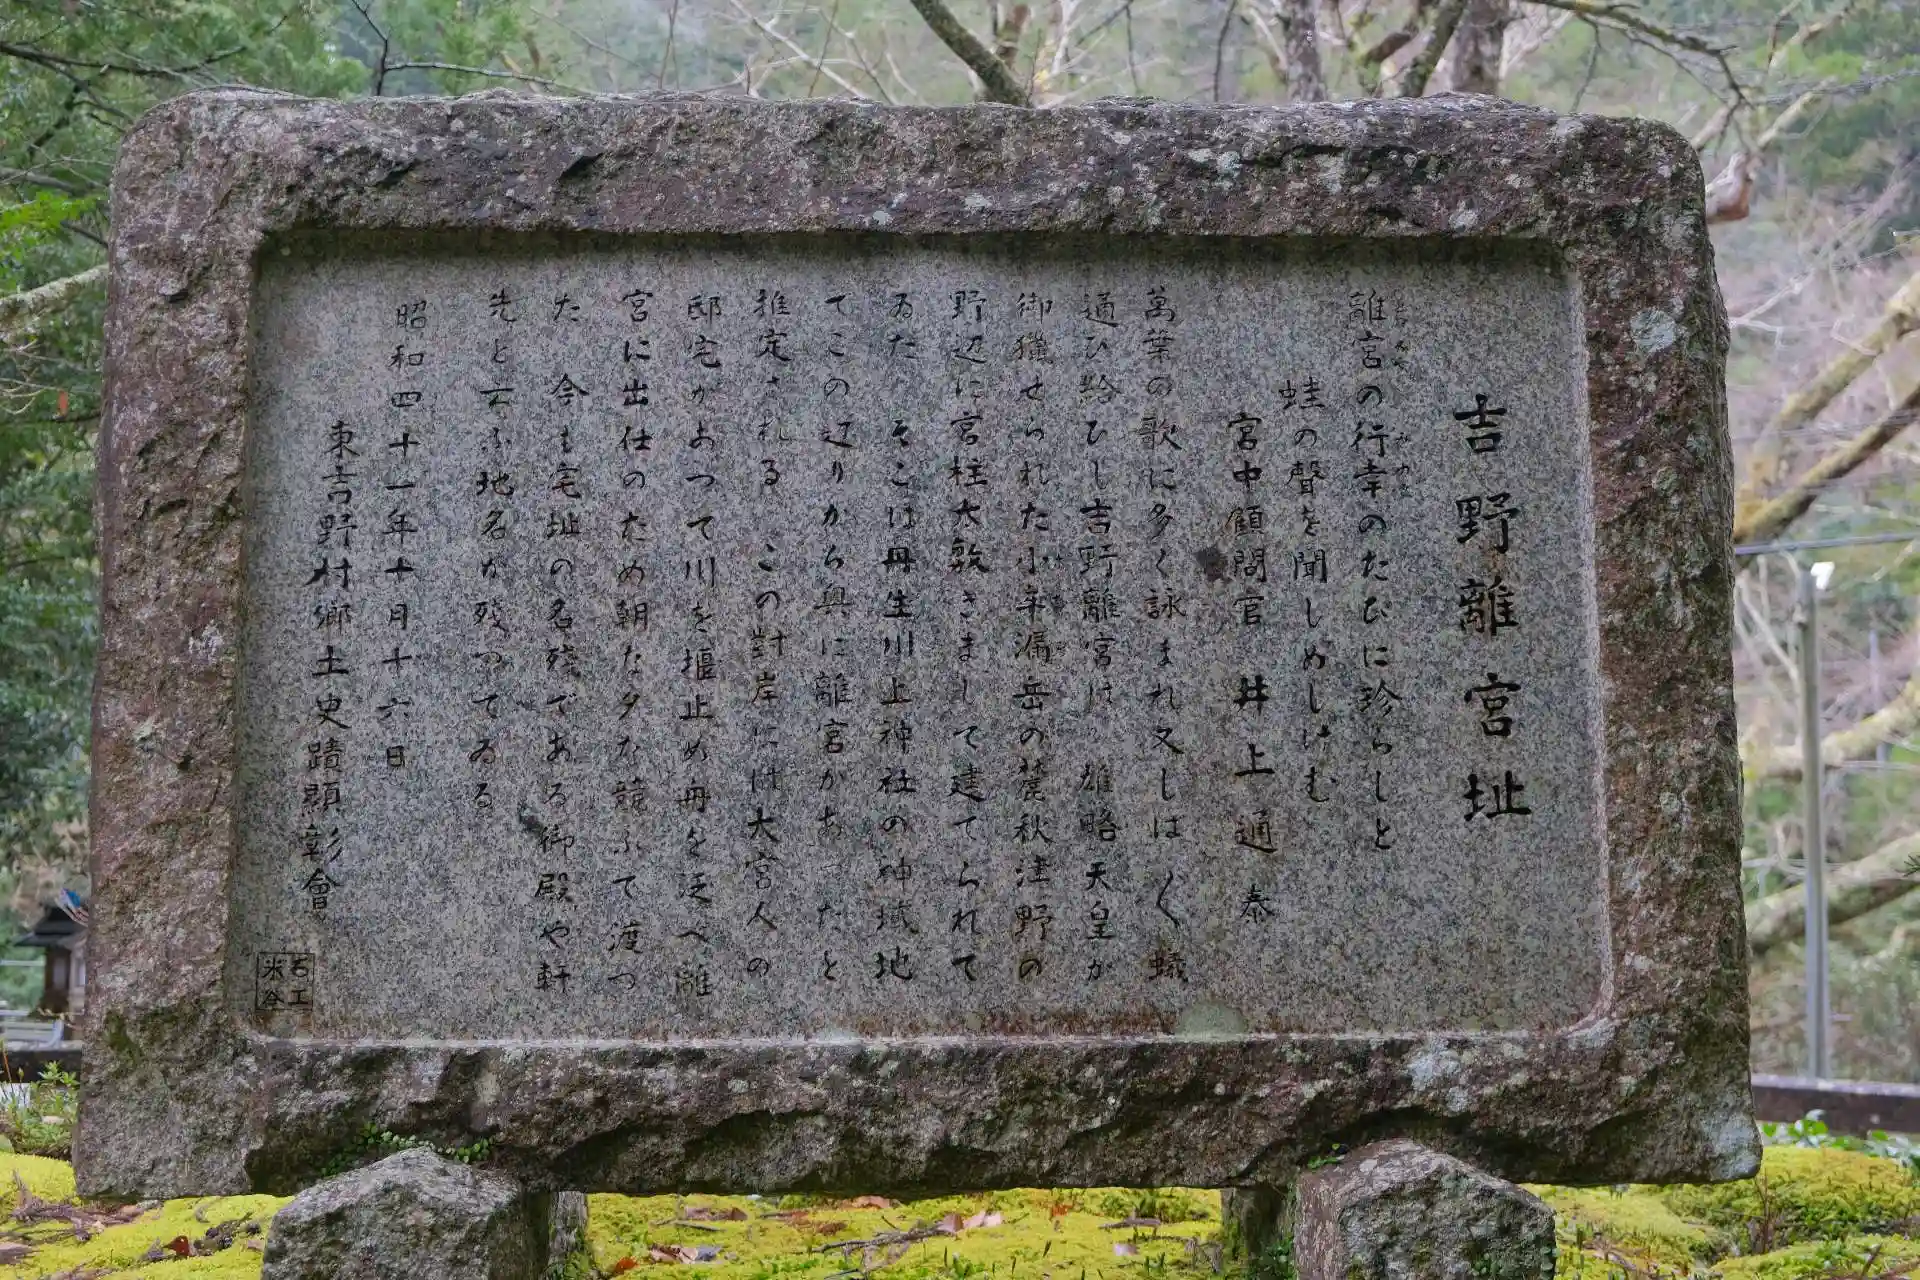 吉野離宮址
離宮の行幸のたびに珍らしと
蛙の聲を聞しめしけむ
宮中顧問官 井上通泰
萬葉の歌に多く詠まれ又しばく蟻
通ひ給ひし吉野離宮は 雄略天皇が
御獵せられた小牟漏岳の麓秋津野の
野辺に宮柱太敷きまして建てられて
ゐた そこは丹生川上神社の神域地
てこの辺りから奥に離宮があったと
推定される この対岸には大宮人の
邸宅があつて川を堰止め舟を泛べ離
宮に出仕のため朝な夕な競ふて渡つ
た 今も宅址の名残である御殿や軒
先と云ふ地名が残つてゐる
昭和四十一年十月十六日
東吉野村郷土史蹟顯彰會
石工
米谷